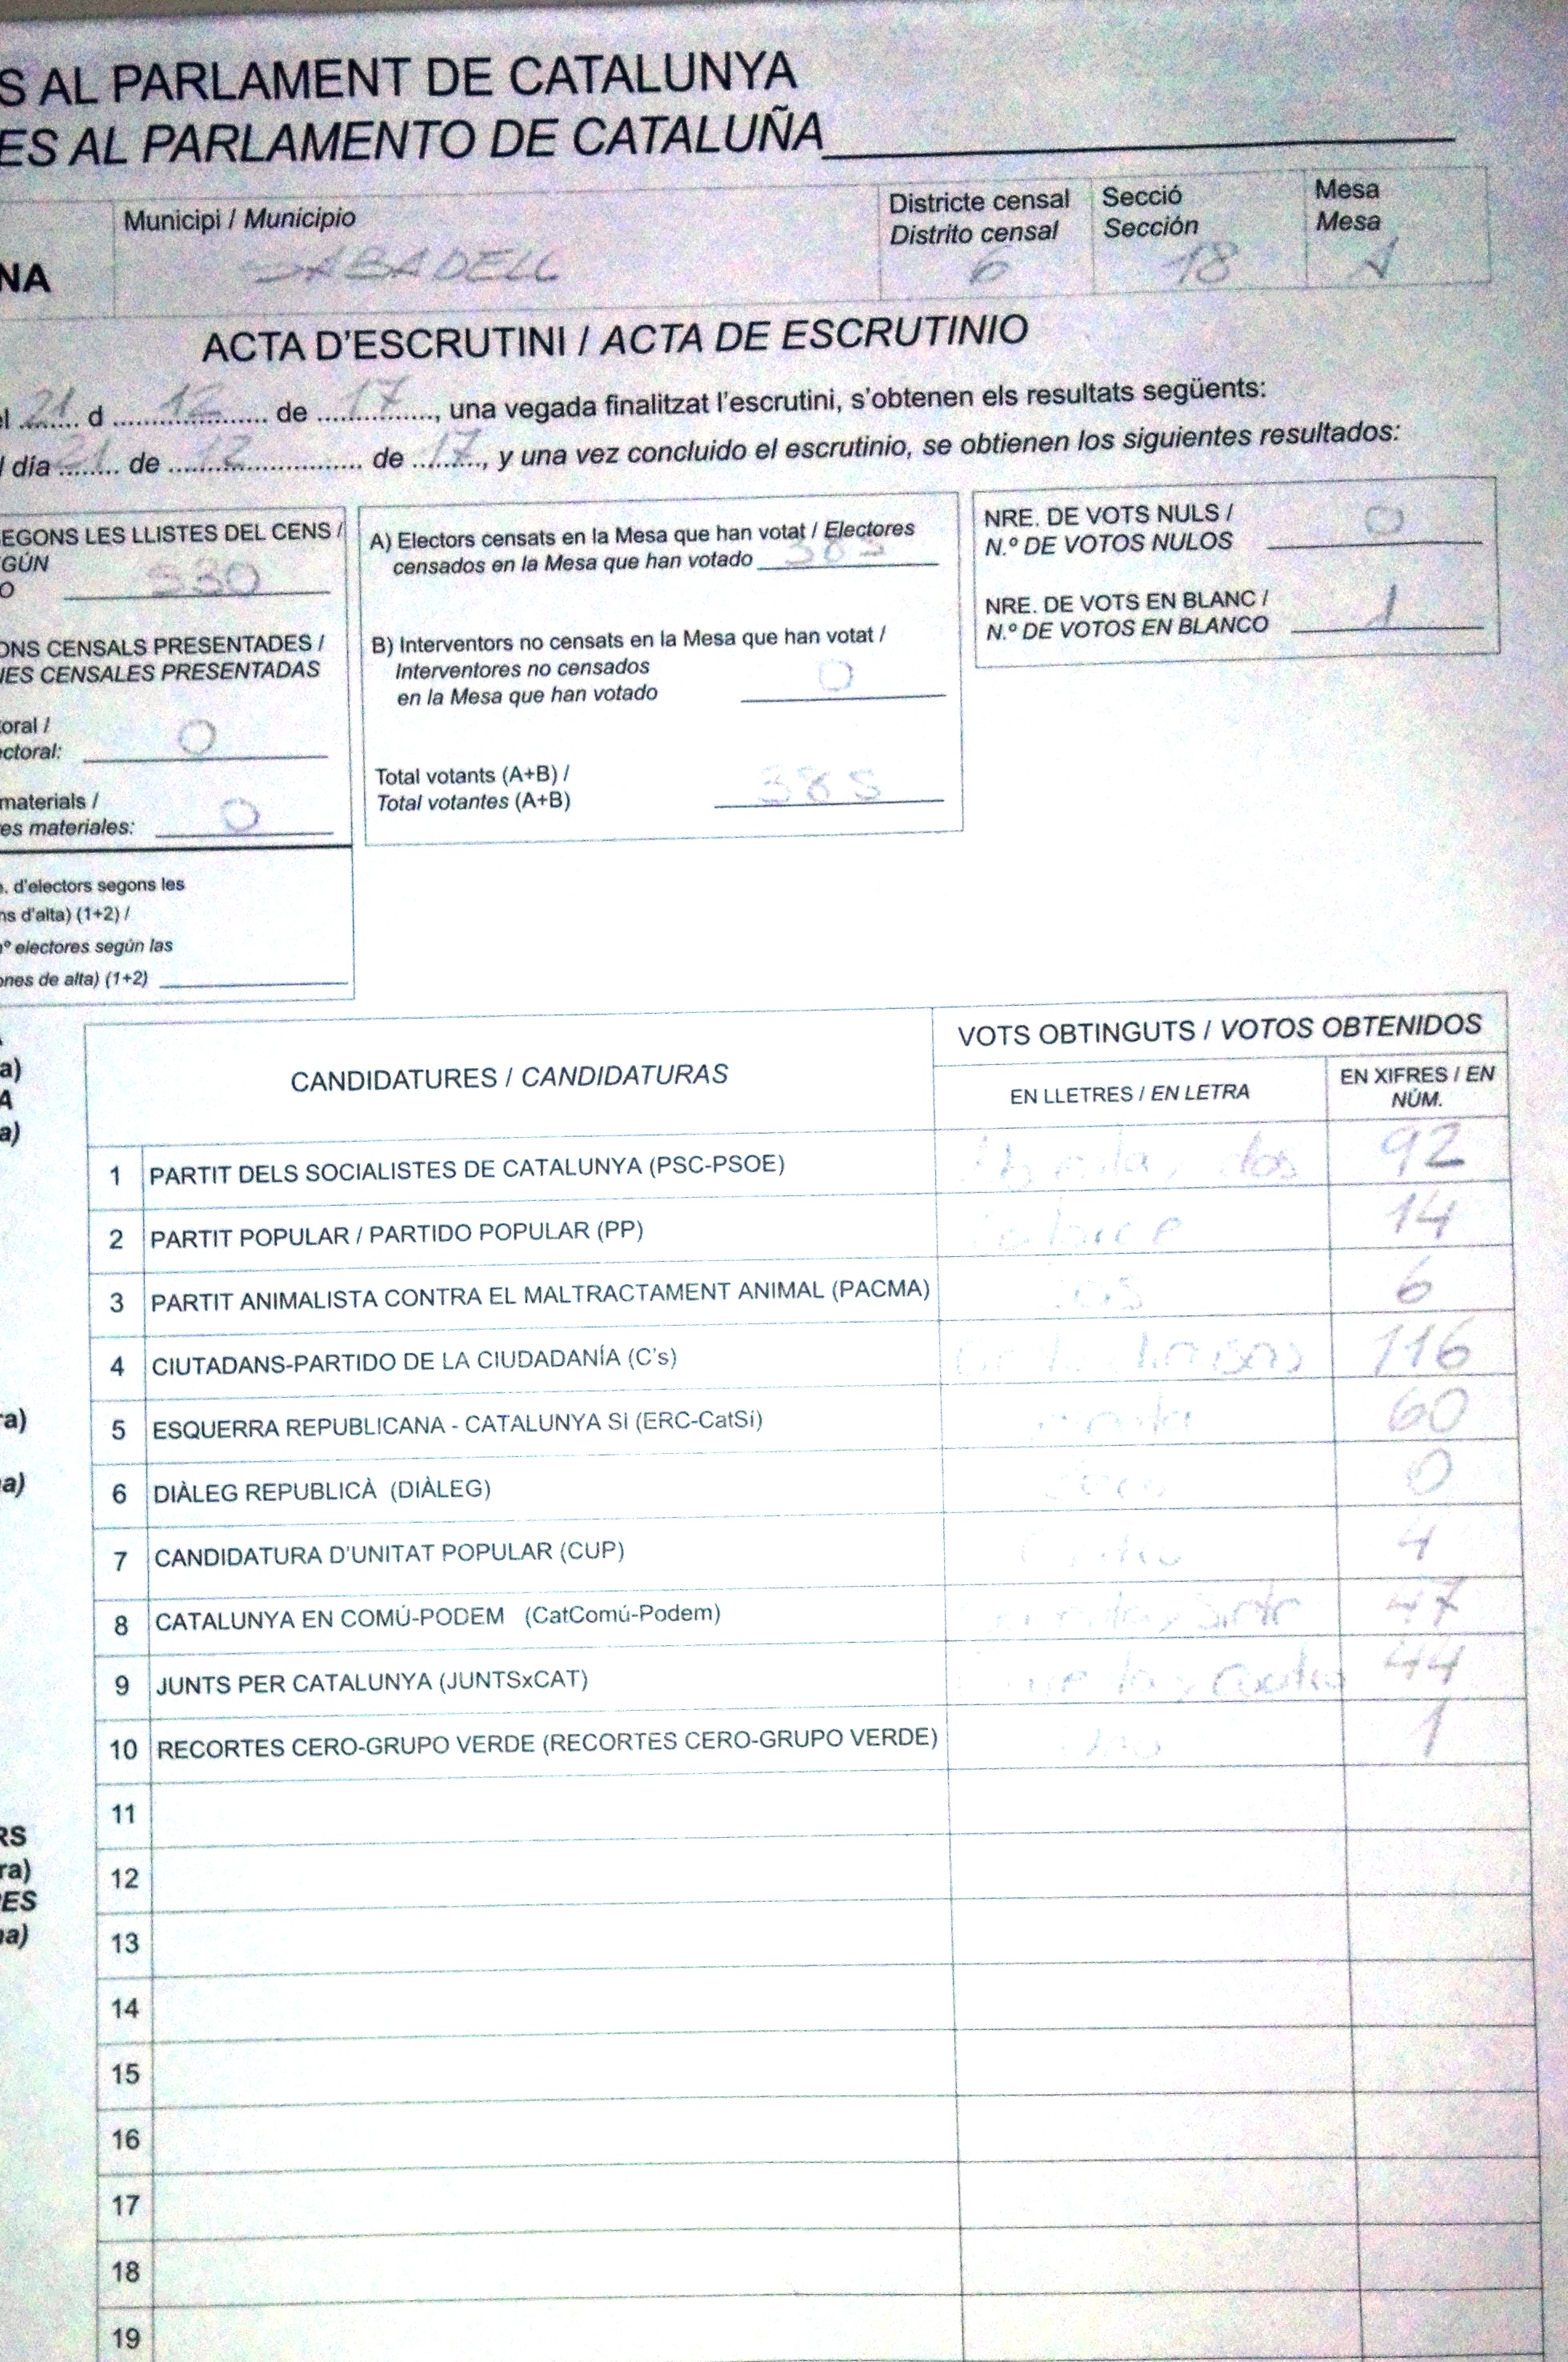 S AL PARLAMENT DE CATALUNYA
ES AL PARLAMENTO DE CATALUÑA
Municipi / Municipio
Districte censal
Distrito censal
Secció
Sección
Mesa
Mesa
NA
SABADELL
6
18
A
ACTA D'ESCRUTINI / ACTA DE ESCRUTINIO
l 21 d 12 de 17, una vegada finalitzat l'escrutini, s'obtenen els resultats següents:
l día 21 de 12 de 17, y una vez concluido el escrutinio, se obtienen los siguientes resultados:
EGONS LES LLISTES DEL CENS /
GÚN
O 530
ONS CENSALS PRESENTADES /
NES CENSALES PRESENTADAS
oral /
ctoral: 0
materials /
es materiales: 0
. d'electors segons les
ns d'alta) (1+2) /
º electores según las
ones de alta) (1+2)
A) Electors censats en la Mesa que han votat / Electores
censados en la Mesa que han votado 385
B) Interventors no censats en la Mesa que han votat /
Interventores no censados
en la Mesa que han votado 0
Total votants (A+B) /
Total votantes (A+B) 385
NRE. DE VOTS NULS /
N.º DE VOTOS NULOS 0
NRE. DE VOTS EN BLANC /
N.º DE VOTOS EN BLANCO 1
a)
A
a)
ra)
a)
RS
ra)
ES
a)
CANDIDATURES / CANDIDATURAS
VOTS OBTINGUTS / VOTOS OBTENIDOS
EN LLETRES / EN LETRA
EN XIFRES / EN
NÚM.
1 PARTIT DELS SOCIALISTES DE CATALUNYA (PSC-PSOE) dos 92
2 PARTIT POPULAR / PARTIDO POPULAR (PP) 14
3 PARTIT ANIMALISTA CONTRA EL MALTRACTAMENT ANIMAL (PACMA) 6
4 CIUTADANS-PARTIDO DE LA CIUDADANÍA (C's) 116
5 ESQUERRA REPUBLICANA - CATALUNYA SÍ (ERC-CatSí) 60
6 DIÀLEG REPUBLICÀ (DIÀLEG) 0
7 CANDIDATURA D'UNITAT POPULAR (CUP) 4
8 CATALUNYA EN COMÚ-PODEM (CatComú-Podem) 47
9 JUNTS PER CATALUNYA (JUNTSxCAT) cuatro 44
10 RECORTES CERO-GRUPO VERDE (RECORTES CERO-GRUPO VERDE) 1
11
12
13
14
15
16
17
18
19